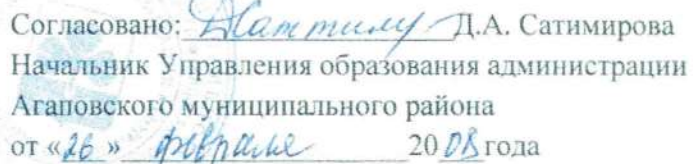 Согласовано: Д.А. Сатимирова
Начальник Управления образования администрации
Агаповского муниципального района
от «26» февраля 2008 года